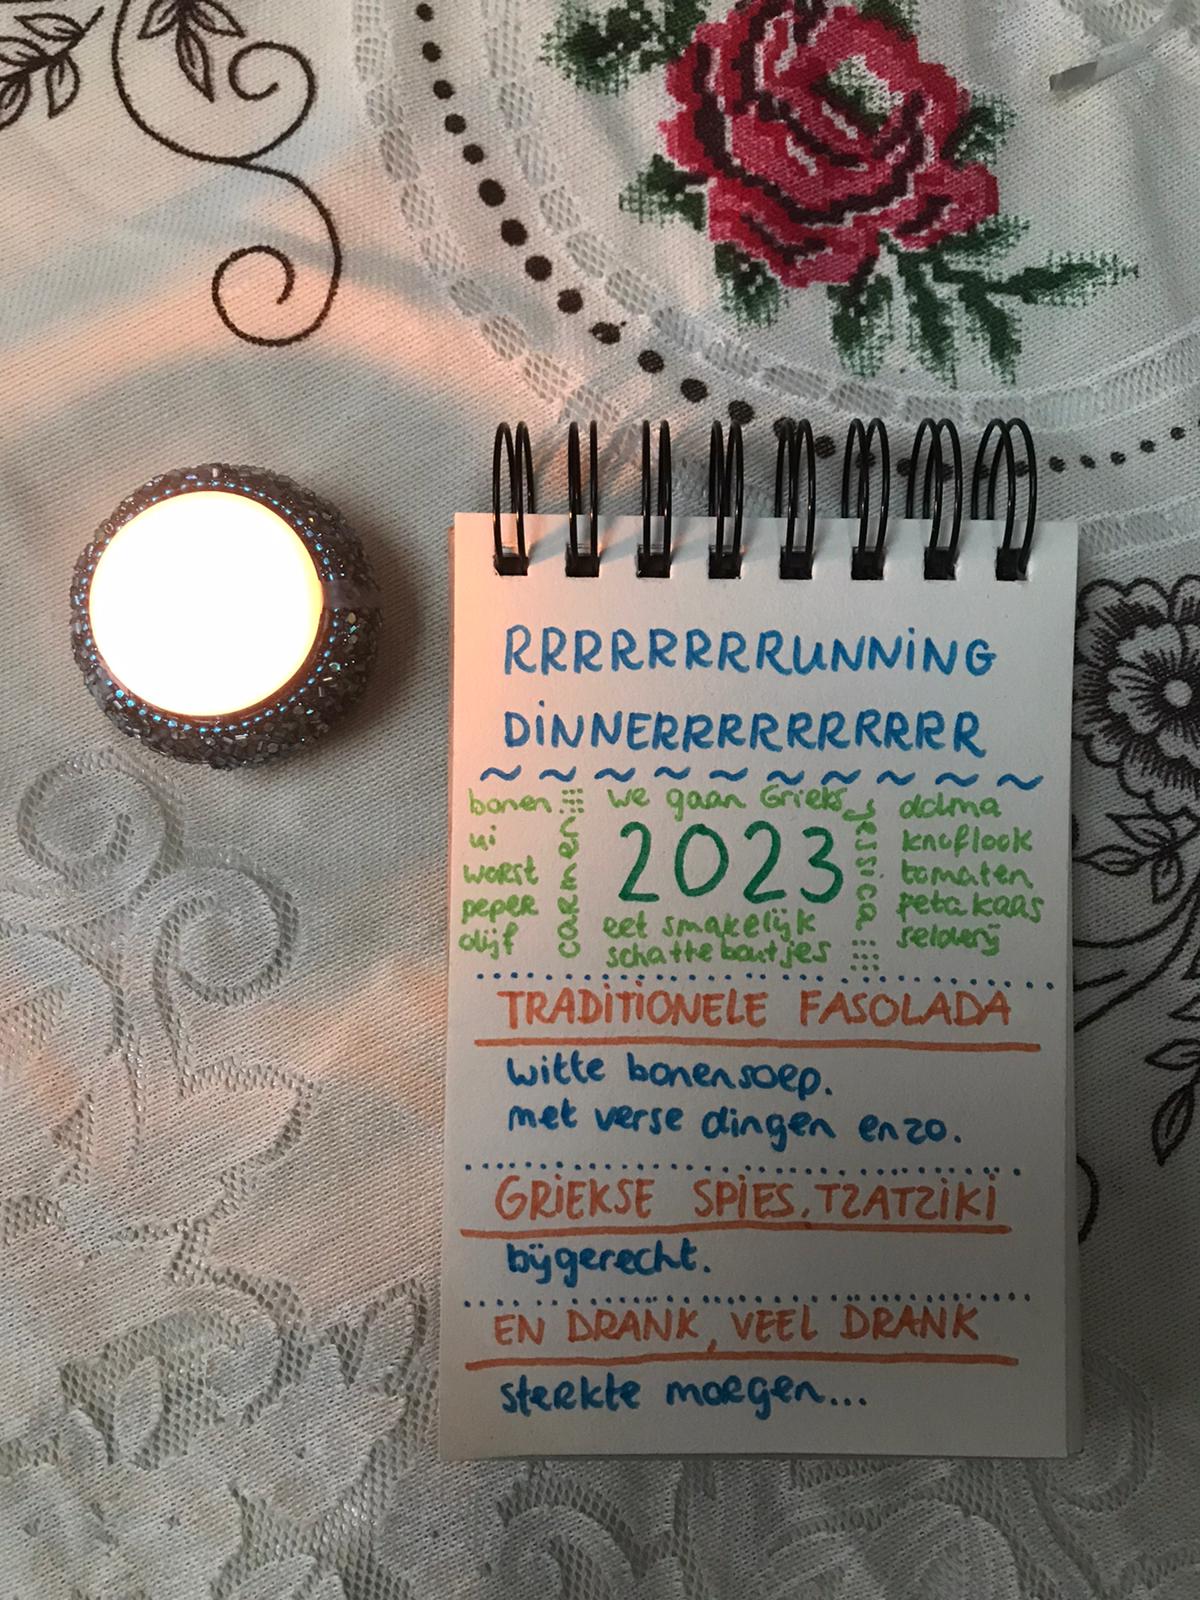 RRRRRRRRUNNING
DINNERRRRRRRRRR
bonen
ui
worst
peper
olijf
carmen
we gaan Grieks
2023
eet smakelijk
schattebautjes
jessica
dolma
knoflook
tomaten
feta kaas
selderij
TRADITIONELE FASOLADA
witte bonensoep.
met verse dingen enzo.
GRIEKSE SPIES, TZATZIKI
bijgerecht.
EN DRANK, VEEL DRANK
sterkte morgen...